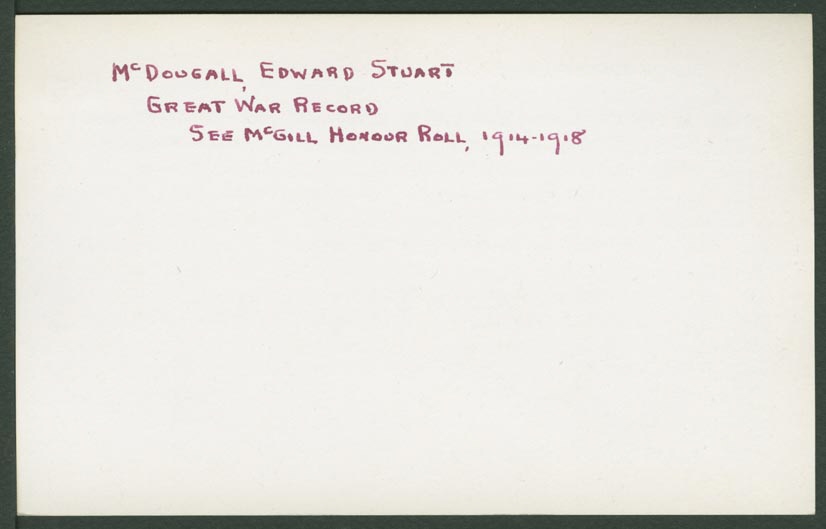 McDougall, Edward Stuart
Great War Record
See McGill Honour Roll, 1914-1918